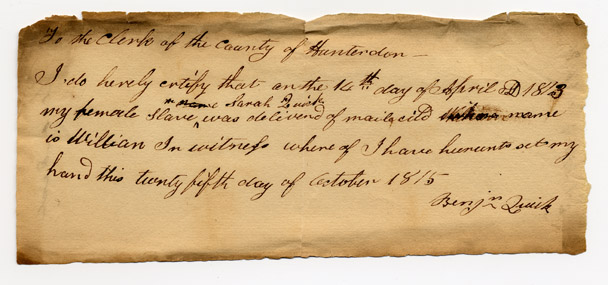 To the Clerk of the County of Hunterdon —
I do herely certify that on the 14th day of April AD 1813
name Sarah Quick
my female Slave ^ was deliverd of maile cild whose name
is Willian In witness where of I have hereunto set my
hand this twenty fifth day of October 1815
Benjn Quick